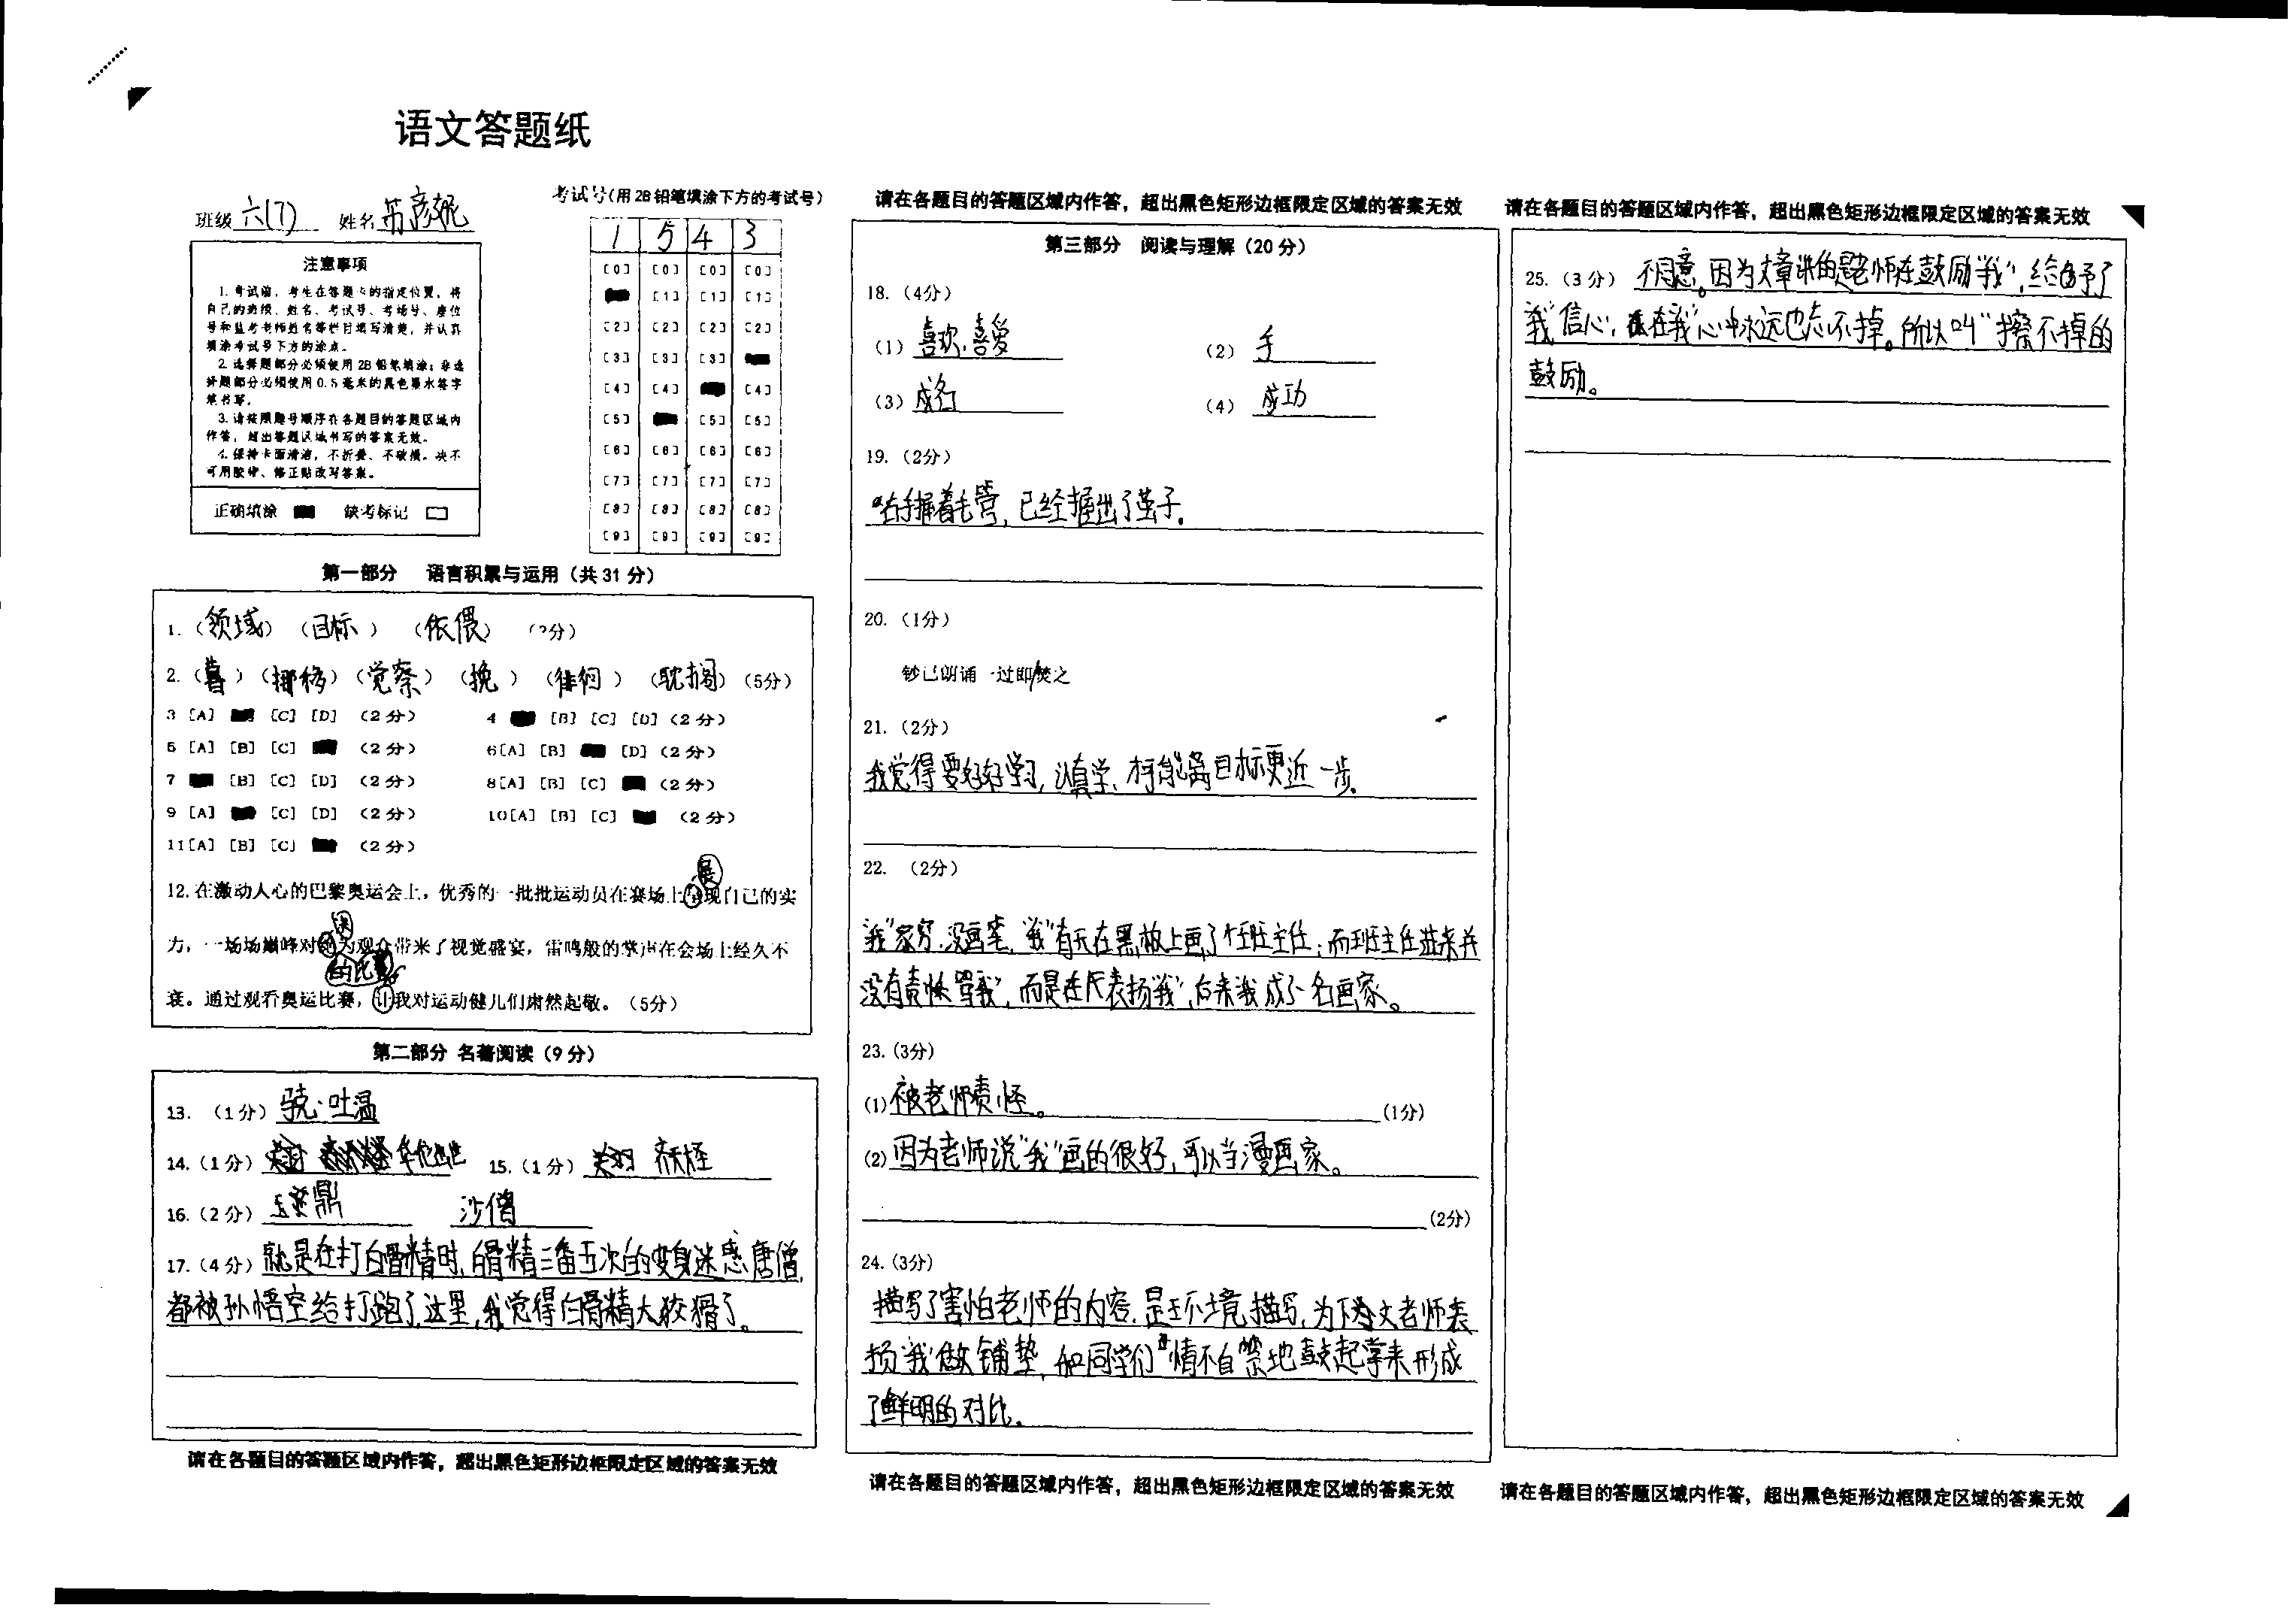 语文答题纸
班级 六(7) 姓名
考试号(用2B铅笔填涂下方的考试号)
1 5 4 3
注意事项
1. 考试前,考生在答题卡的指定位置,将
自己的班级、姓名、考试号、考场号、座位
号和监考老师姓名等栏目填写清楚,并认真
填涂考试号下方的涂点。
2. 选择题部分必须使用2B铅笔填涂;非选
择题部分必须使用0.5毫米的黑色墨水签字
笔书写。
3. 请按照题号顺序在各题目的答题区域内
作答,超出答题区域书写的答案无效。
4. 保持卡面清洁,不折叠、不破损。决不
可用胶带、修正贴改写答案。
正确填涂 缺考标记
[0] [0] [0] [0]
[1] [1] [1]
[2] [2] [2] [2]
[3] [3] [3]
[4] [4] [4]
[5] [5] [5]
[6] [6] [6] [6]
[7] [7] [7] [7]
[8] [8] [8] [8]
[9] [9] [9] [9]
第一部分 语言积累与运用(共31分)
1.(领域)(目标)(依偎)(3分)
2.(暮)(挪移)(觉察)(挽)(徘徊)(耽搁)(5分)
3 [A] [C] [D] (2分) 4 [B] [C] [D] (2分)
5 [A] [B] [C] (2分) 6 [A] [B] [D] (2分)
7 [B] [C] [D] (2分) 8 [A] [B] [C] (2分)
9 [A] [C] [D] (2分) 10 [A] [B] [C] (2分)
11 [A] [B] [C] (2分)
展
12. 在激动人心的巴黎奥运会上,优秀的一批批运动员在赛场上现自己的实
决
力,一场场巅峰对为观众带来了视觉盛宴,雷鸣般的掌声在会场上经久不
的比赛
衰。通过观看奥运比赛,让我对运动健儿们肃然起敬。(5分)
第二部分 名著阅读(9分)
13.(1分)骁·吐温
14.(1分) 15.(1分)
16.(2分) 沙僧
17.(4分)就是在打白骨精时,白骨精三番五次的变身迷惑唐僧,
都被孙悟空给打跑了,这里,我觉得白骨精太狡猾了。
请在各题目的答题区域内作答,超出黑色矩形边框限定区域的答案无效
请在各题目的答题区域内作答,超出黑色矩形边框限定区域的答案无效
第三部分 阅读与理解(20分)
18.(4分)
(1)喜欢,喜爱 (2)手
(3)成名 (4)成功
19.(2分)
右手握着毛管,已经握出了茧子。
20.(1分)
钞已朗诵一过即焚之
21.(2分)
我觉得要好好学习,认真学,才能离目标更近一步。
22.(2分)
“我”家穷,没画笔,“我”有天在黑板上画了个班主任;而班主任进来并
没有责怪骂“我”,而是在表扬“我”,后来我成了名画家。
23.(3分)
(1)被老师责怪。(1分)
(2)因为老师说“我”画的很好,可以当漫画家。
(2分)
24.(3分)
描写了害怕老师的内容,是环境描写,为下文老师表
扬“我”做铺垫,和同学们“情不自禁地鼓起掌来形成
了鲜明的对比。
请在各题目的答题区域内作答,超出黑色矩形边框限定区域的答案无效
请在各题目的答题区域内作答,超出黑色矩形边框限定区域的答案无效
25.(3分)不同意。因为文章讲的是老师在鼓励“我”,给予了
“我”信心,在“我”心中永远也忘不掉。所以叫“擦不掉的
鼓励。
请在各题目的答题区域内作答,超出黑色矩形边框限定区域的答案无效